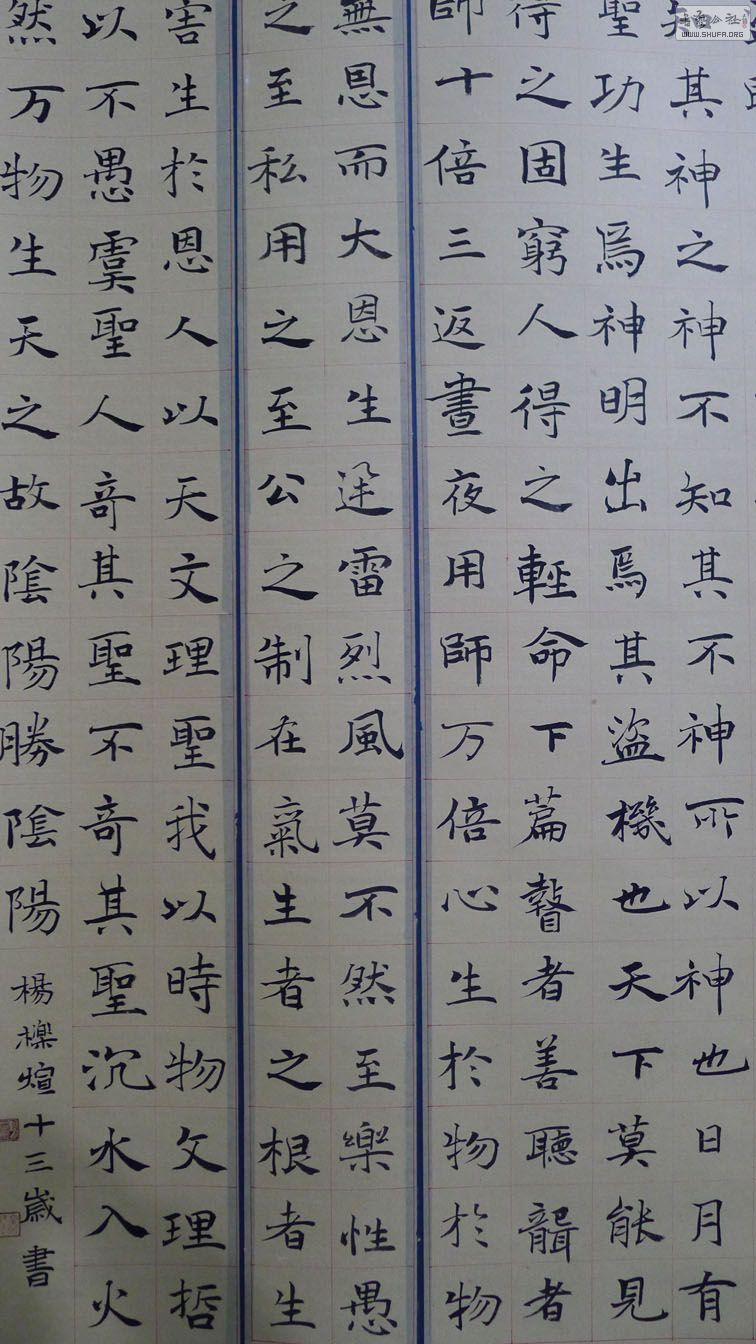 其神之神不知其不神所以神也日月有
聖功生焉神明出焉其盜機也天下莫能見
得之固窮人得之輕命下篇瞽者善聽聾者
師十倍三返晝夜用師万倍心生於物於物
無恩而大恩生迅雷烈風莫不然至樂性愚
之至私用之至公之制在氣生者之根者生
害生於恩人以天文理聖我以時物文理哲
以不愚虞聖人奇其聖不奇其聖沉水入火
然万物生天之故陰陽勝陰陽
楊櫟煊十三歲書
公社
WWW.SHUFA.ORG